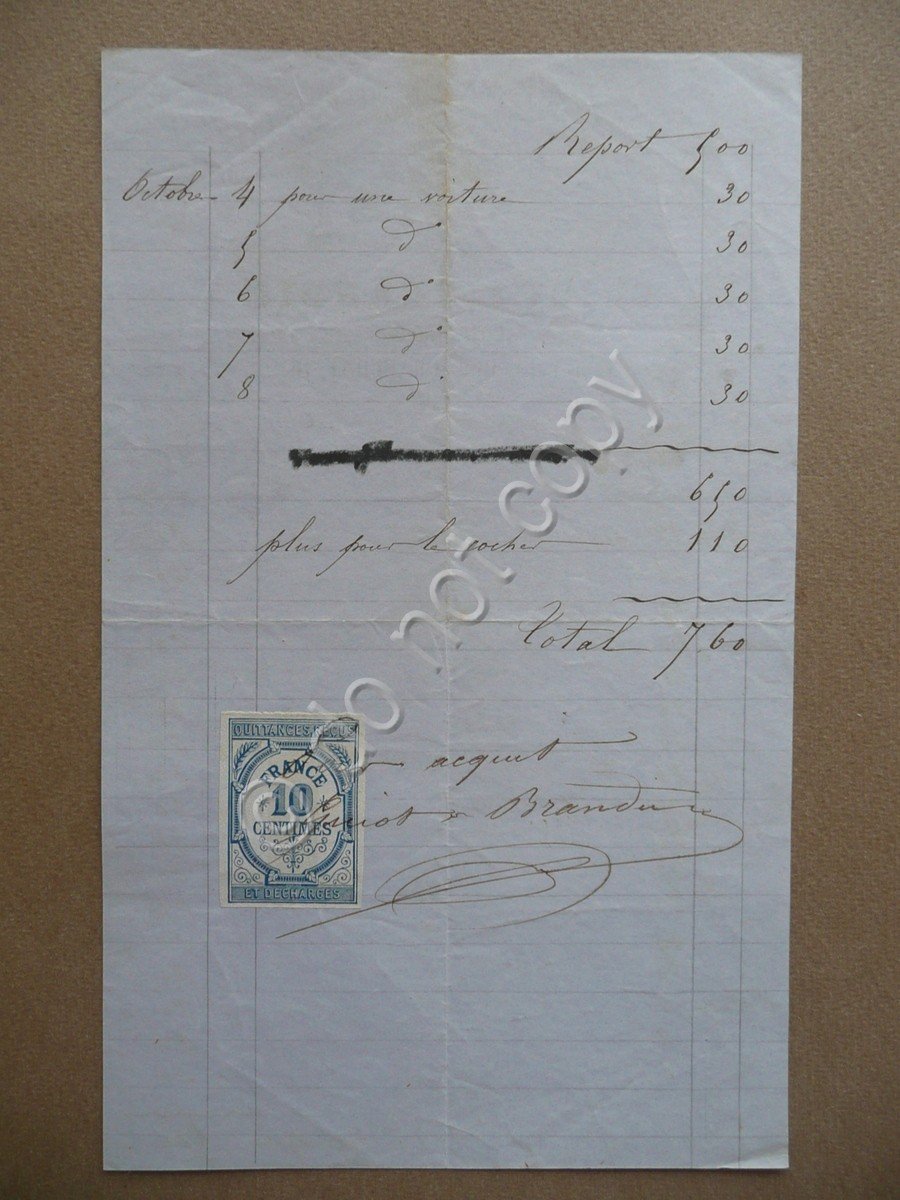 Report 500
Octobre 4 pour une voiture 30
5 d° 30
6 d° 30
7 d° 30
8 d° 30
650
plus pour le cocher 110
Total 760
QUITTANCES, REÇUS
FRANCE
10
CENTIMES
ET DÉCHARGES
acquit
Do not copy